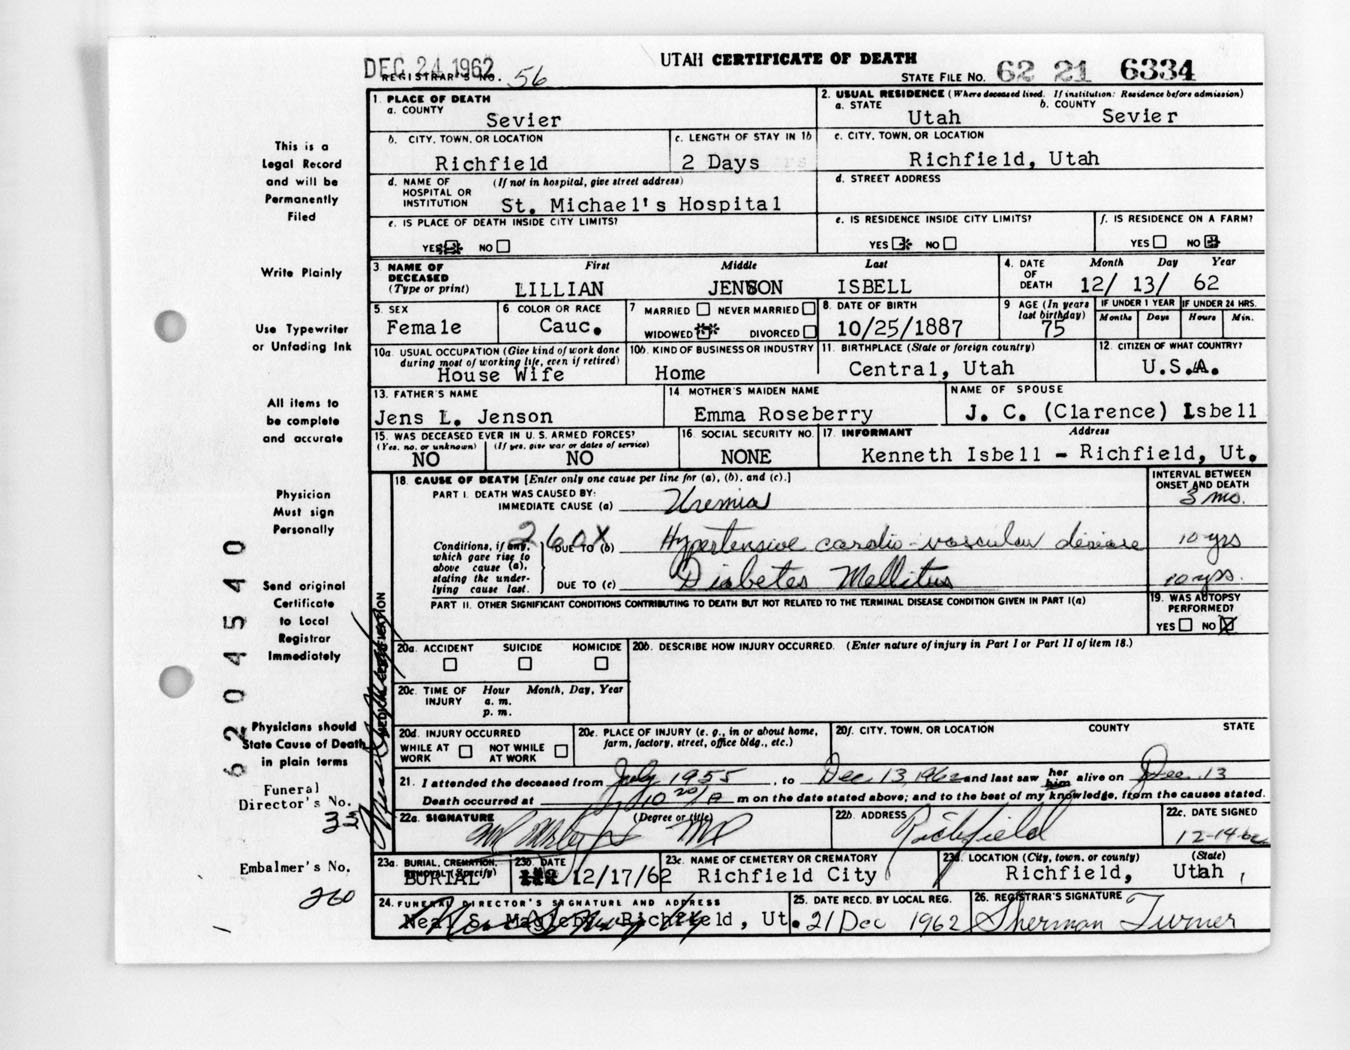 DEC 24 1962
UTAH CERTIFICATE OF DEATH
REGISTRAR'S NO. 56
STATE FILE NO. 62 21 6334
1. PLACE OF DEATH
a. COUNTY
Sevier
2. USUAL RESIDENCE (Where deceased lived. If institution: Residence before admission)
a. STATE b. COUNTY
Utah Sevier
b. CITY, TOWN, OR LOCATION
Richfield
c. LENGTH OF STAY IN 1b
2 Days
c. CITY, TOWN, OR LOCATION
Richfield, Utah
d. NAME OF HOSPITAL OR INSTITUTION (If not in hospital, give street address)
St. Michael's Hospital
d. STREET ADDRESS
e. IS PLACE OF DEATH INSIDE CITY LIMITS?
YES NO
e. IS RESIDENCE INSIDE CITY LIMITS?
YES NO
f. IS RESIDENCE ON A FARM?
YES NO
3. NAME OF DECEASED (Type or print)
First Middle Last
LILLIAN JENSON ISBELL
4. DATE OF DEATH
Month Day Year
12/ 13/ 62
5. SEX
Female
6. COLOR OR RACE
Cauc.
7. MARRIED NEVER MARRIED
WIDOWED DIVORCED
8. DATE OF BIRTH
10/25/1887
9. AGE (In years last birthday)
75
IF UNDER 1 YEAR IF UNDER 24 HRS.
Months Days Hours Min.
10a. USUAL OCCUPATION (Give kind of work done during most of working life, even if retired)
House Wife
10b. KIND OF BUSINESS OR INDUSTRY
Home
11. BIRTHPLACE (State or foreign country)
Central, Utah
12. CITIZEN OF WHAT COUNTRY?
U.S.A.
13. FATHER'S NAME
Jens L. Jenson
14. MOTHER'S MAIDEN NAME
Emma Roseberry
NAME OF SPOUSE
J. C. (Clarence) Isbell
15. WAS DECEASED EVER IN U. S. ARMED FORCES?
(Yes, no, or unknown) (If yes, give war or dates of service)
NO NO
16. SOCIAL SECURITY NO.
NONE
17. INFORMANT Address
Kenneth Isbell - Richfield, Ut.
18. CAUSE OF DEATH [Enter only one cause per line for (a), (b), and (c).]
INTERVAL BETWEEN ONSET AND DEATH
PART I. DEATH WAS CAUSED BY:
IMMEDIATE CAUSE (a) Uremia 3 mo.
260X
Conditions, if any, which gave rise to above cause (a), stating the underlying cause last.
DUE TO (b) Hypertensive cardio-vascular disease 10 yrs
DUE TO (c) Diabetes Mellitus 10 yrs.
PART II. OTHER SIGNIFICANT CONDITIONS CONTRIBUTING TO DEATH BUT NOT RELATED TO THE TERMINAL DISEASE CONDITION GIVEN IN PART I(a)
19. WAS AUTOPSY PERFORMED?
YES NO
MEDICAL CERTIFICATION
20a. ACCIDENT SUICIDE HOMICIDE
20b. DESCRIBE HOW INJURY OCCURRED. (Enter nature of injury in Part I or Part II of item 18.)
20c. TIME OF INJURY Hour Month, Day, Year
a. m.
p. m.
20d. INJURY OCCURRED
WHILE AT WORK NOT WHILE AT WORK
20e. PLACE OF INJURY (e. g., in or about home, farm, factory, street, office bldg., etc.)
20f. CITY, TOWN, OR LOCATION COUNTY STATE
21. I attended the deceased from July 1955, to Dec. 13, 1962 and last saw her him alive on Dec. 13
Death occurred at 10 20/A m on the date stated above; and to the best of my knowledge, from the causes stated.
22a. SIGNATURE (Degree or title)
MD
22b. ADDRESS
Richfield
22c. DATE SIGNED
12-14-62
23a. BURIAL, CREMATION, REMOVAL (Specify)
BURIAL
23b. DATE
12/17/62
23c. NAME OF CEMETERY OR CREMATORY
Richfield City
23d. LOCATION (City, town, or county) (State)
Richfield, Utah
24. FUNERAL DIRECTOR'S SIGNATURE AND ADDRESS
Neal S. Magleby Richfield, Ut.
25. DATE RECD. BY LOCAL REG.
21 Dec 1962
26. REGISTRAR'S SIGNATURE
Sherman Turner
This is a
Legal Record
and will be
Permanently
Filed
Write Plainly
Use Typewriter
or Unfading Ink
All items to
be complete
and accurate
Physician
Must sign
Personally
Send original
Certificate
to Local
Registrar
Immediately
Physicians should
State Cause of Death
in plain terms
Funeral
Director's No.
Embalmer's No.
260
6204540